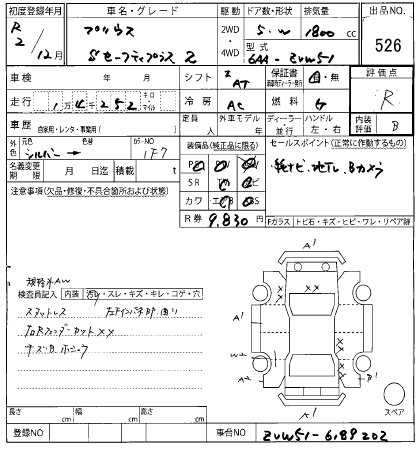 初度登録年月 車名・グレード 駆動 ドア数・形状 排気量 出品NO.
R2 / 12月 プリウス 2WD 5.W 1800cc
Sセーフティプラス 2 4WD 型式 6AA-ZVW51 526
車検 年 月 シフト AT 保証書 有・無 評価点
走行 1万4千252 キロ マイル 冷房 AC 燃料 G R
車歴 自家用・レンタ・事業用( ) 定員 人 外車モデル 年 ディーラー 並行 ハンドル 左・右 内装評価 B
外色 元色 シルバー → 色替 カラーNO 1F7 装備品(純正品に限る) セールスポイント(正常に動作するもの)
名義変更期限 月 日迄 積載 t SR ナビ、地デジ、Bカメラ
注意事項(欠品・修復・不具合箇所および状態) カワ
R券 9,830円 Fガラス トビ石・キズ・ヒビ・ワレ・リペア跡
規格外AW
検査員記入 内装 汚・スレ・キズ・キレ・コゲ・穴
スタットレス 曲り
カット××
キズB
A1
A1
W2
A2
B1
A1
スペア
長さ cm 幅 cm 高さ cm
登録NO 車台NO ZVW51-6189202